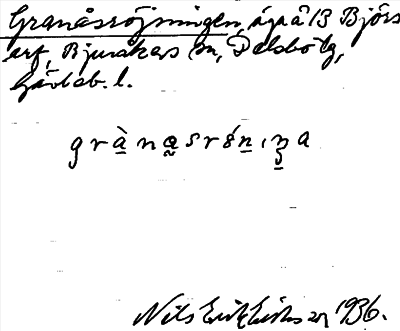 Granåsröjningen, äga å 13 Björs
arf, Bjuråkers sn, Delsbo tg,
Gävleb. l.
Nils Erik Eriksson 1936.